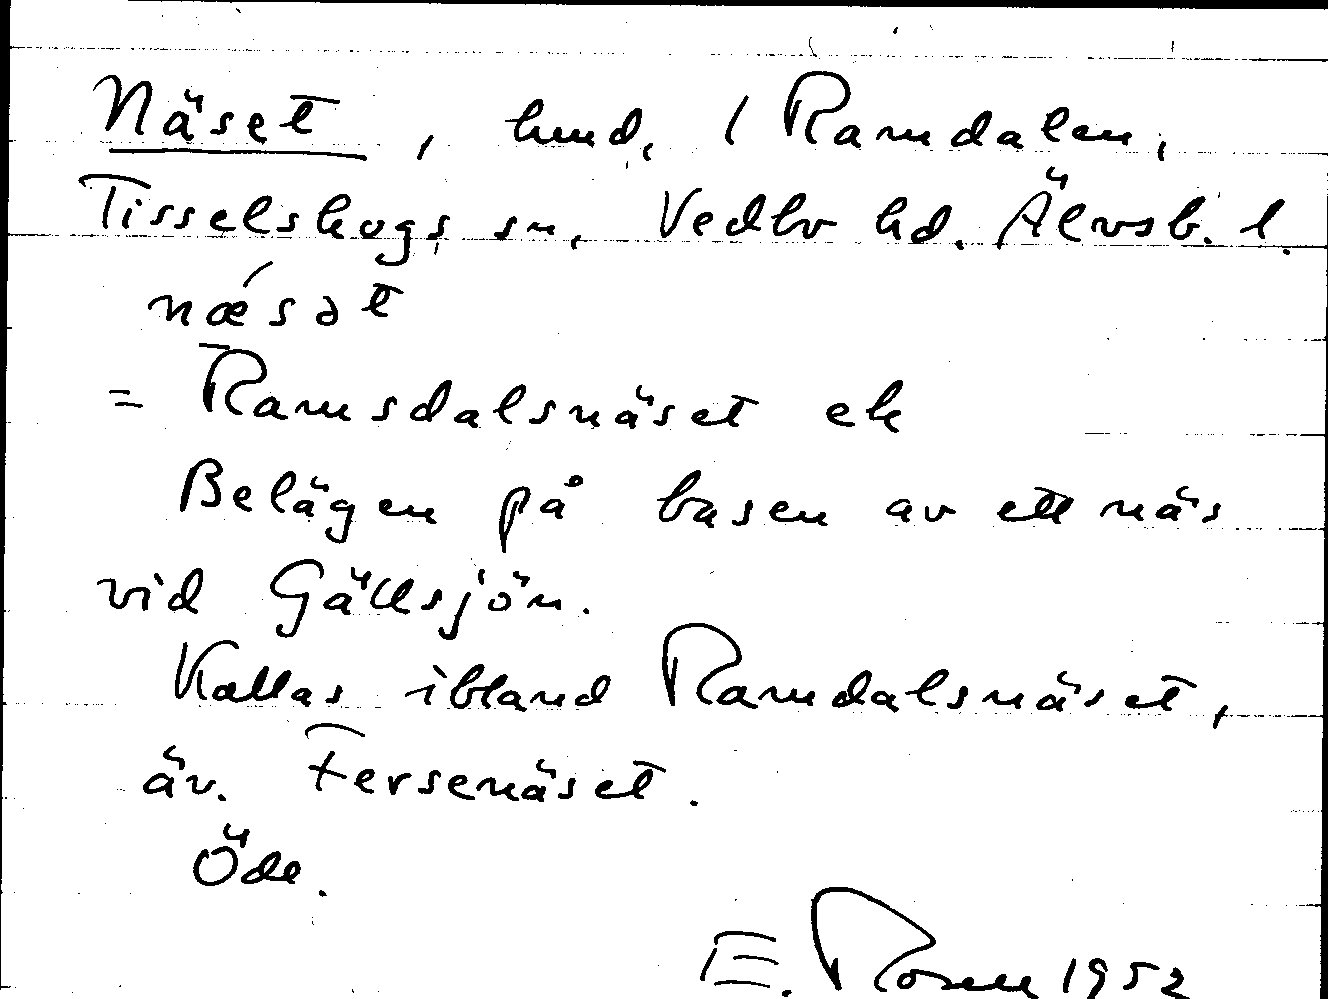 Näset, hmd, 1 Ramdalen,
Tisselskogs sn, Vedbo hd. Älvsb. l.
næ´sət
= Ramsdalsnäset ek
Belägen på basen av ett näs
vid Gällsjön.
Kallas ibland Ramdalsnäset,
äv. Fersenäset.
Öde.
E. Rosen 1952